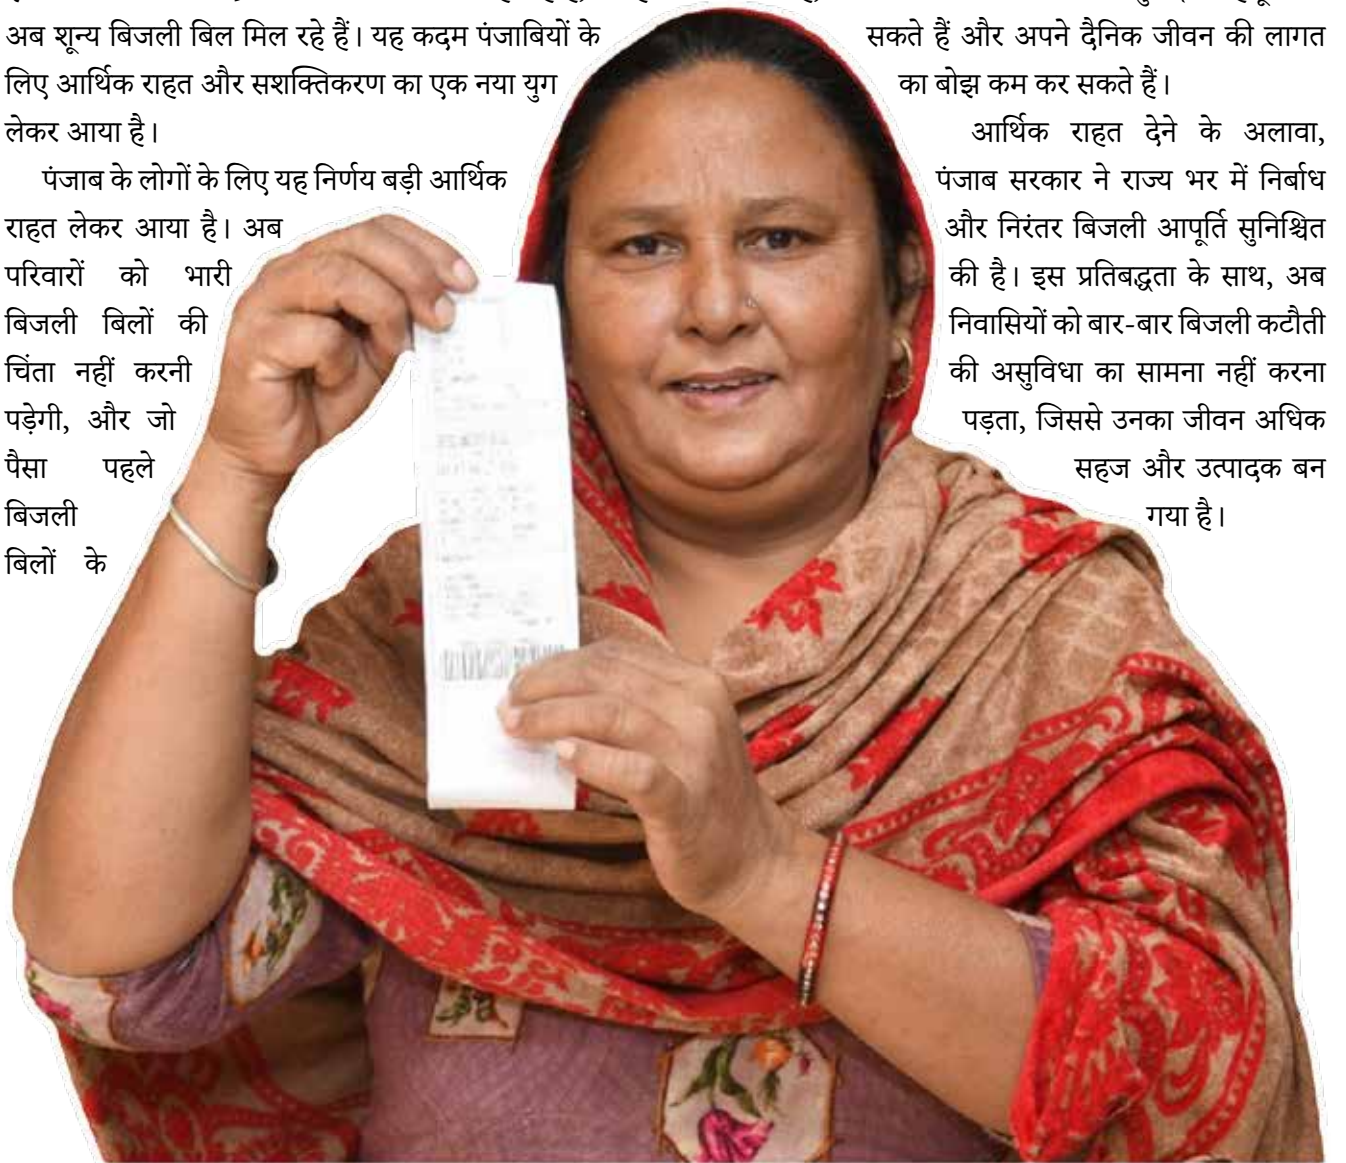 अब शून्य बिजली बिल मिल रहे हैं। यह कदम पंजाबियों के
लिए आर्थिक राहत और सशक्तिकरण का एक नया युग
लेकर आया है।
पंजाब के लोगों के लिए यह निर्णय बड़ी आर्थिक
राहत लेकर आया है। अब
परिवारों को भारी
बिजली बिलों की
चिंता नहीं करनी
पड़ेगी, और जो
पैसा पहले
बिजली
बिलों के
सकते हैं और अपने दैनिक जीवन की लागत
का बोझ कम कर सकते हैं।
आर्थिक राहत देने के अलावा,
पंजाब सरकार ने राज्य भर में निर्बाध
और निरंतर बिजली आपूर्ति सुनिश्चित
की है। इस प्रतिबद्धता के साथ, अब
निवासियों को बार-बार बिजली कटौती
की असुविधा का सामना नहीं करना
पड़ता, जिससे उनका जीवन अधिक
सहज और उत्पादक बन
गया है।